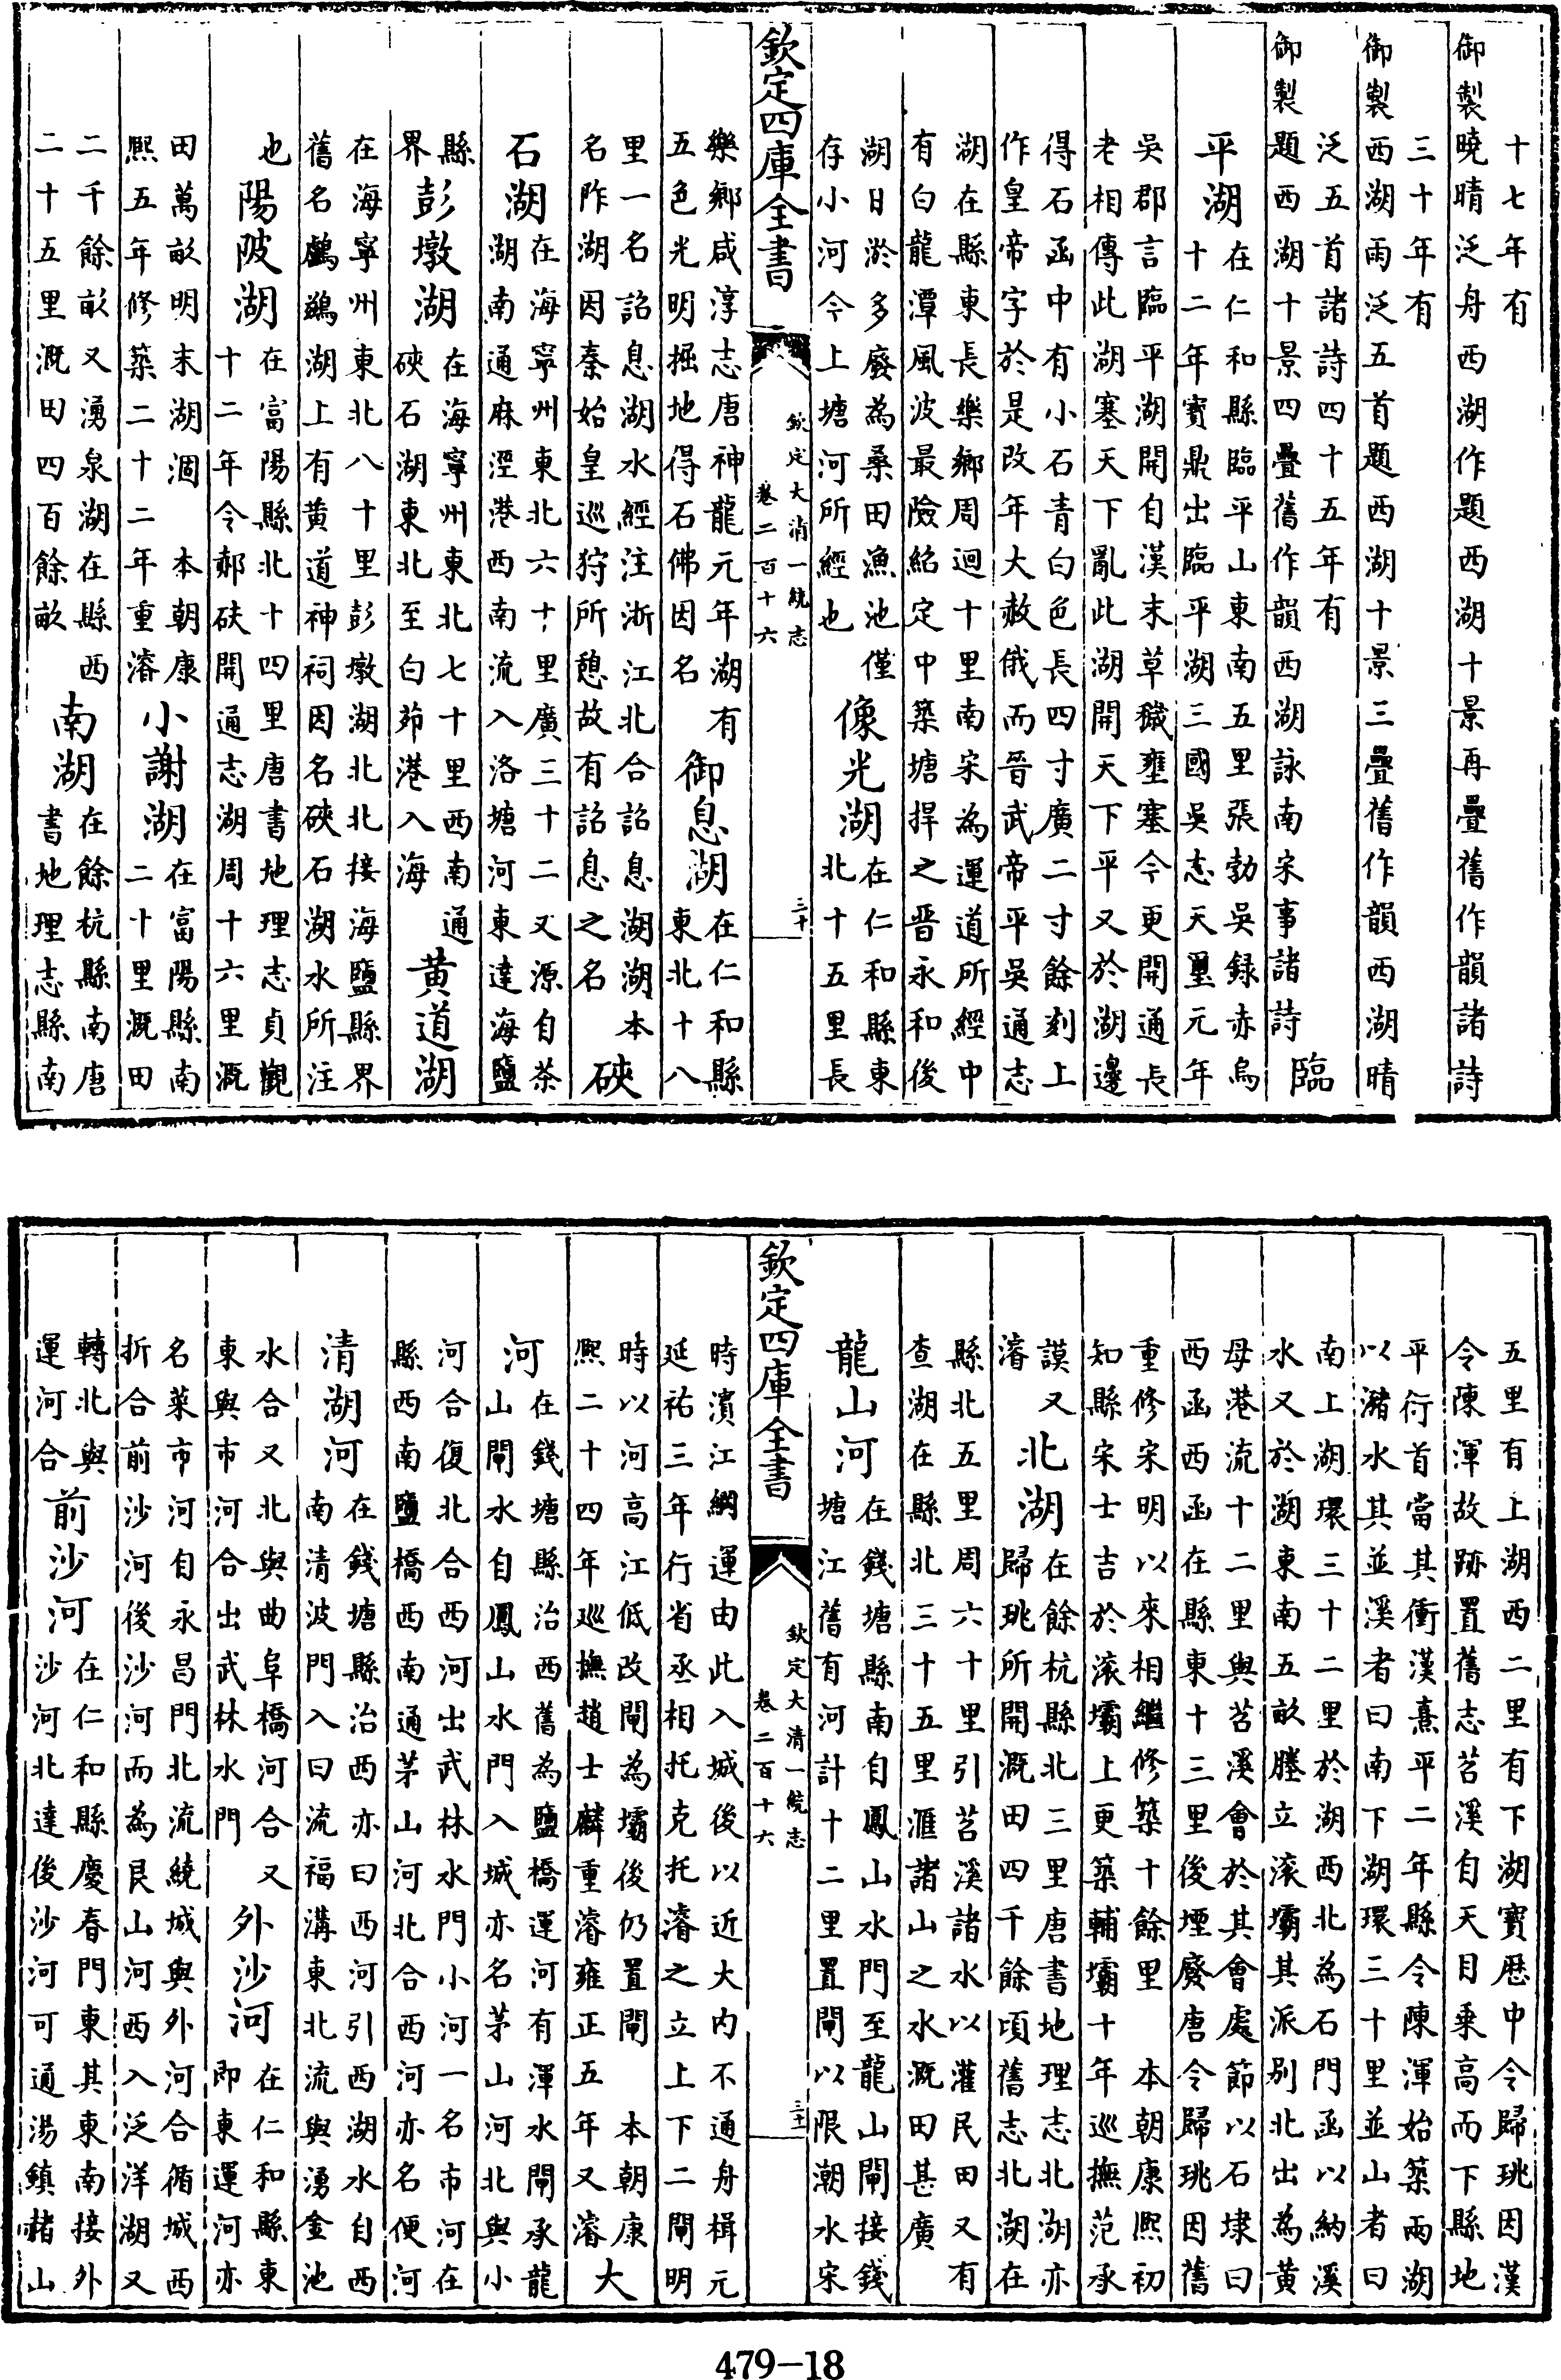 十七年有
御製曉晴泛舟西湖作題西湖十景再疊舊作韻諸詩
三十年有
御製西湖雨泛五首題西湖十景三疊舊作韻西湖晴
泛五首諸詩四十五年有
御製題西湖十景四疊舊作韻西湖詠南宋事諸詩
臨
平湖
在仁和縣臨平山東南五里張勃吳録赤烏
十二年寶鼎出臨平湖三國吳志天璽元年
吳郡言臨平湖開自漢末草穢壅塞今更開通長
老相傳此湖塞天下亂此湖開天下平又於湖邊
得石函中有小石青白色長四寸廣二寸餘刻上
作皇帝字於是改年大赦俄而晉武帝平吳通志
湖在縣東長樂鄉周迴十里南宋為運道所經中
有白龍潭風波最險紹定中築塘捍之晉永和後
湖日淤多廢為桑田漁池僅
存小河今上塘河所經也
像光湖
在仁和縣東
北十五里長
欽定四庫全書
欽定大清一統志
卷二百十六
三十
樂鄉咸淳志唐神龍元年湖有
五色光明掘地得石佛因名
御息湖
在仁和縣
東北十八
里一名詔息湖水經注浙江北合詔息湖湖本
名阼湖因秦始皇巡狩所憩故有詔息之名
硤
石湖
在海寧州東北六十里廣三十二又源自茶
湖南通麻涇港西南流入洛塘河東達海鹽
縣
界
彭墩湖
在海寧州東北七十里西南通
硤石湖東北至白茆港入海
黄道湖
在海寧州東北八十里彭墩湖北北接海鹽縣界
舊名鸕鷀湖上有黄道神祠因名硤石湖水所注
也
陽陂湖
在富陽縣北十四里唐書地理志貞觀
十二年令郝砆開通志湖周十六里溉
田萬畝明末湖涸 本朝康
熙五年修築二十二年重濬
小謝湖
在富陽縣南
二十里溉田
二千餘畝又湧泉湖在縣西
二十五里溉田四百餘畝
南湖
在餘杭縣南唐
書地理志縣南
五里有上湖西二里有下湖寶歴中令歸珧因漢
令陳渾故跡置舊志苕溪自天目乘高而下縣地
平衍首當其衝漢熹平二年縣令陳渾始築兩湖
以瀦水其並溪者曰南下湖環三十里並山者曰
南上湖環三十二里於湖西北為石門函以納溪
水又於湖東南五畝塍立滚壩其派别北出為黄
母港流十二里與苕溪會於其會處節以石埭曰
西函西函在縣東十三里後堙廢唐令歸珧因舊
重修宋明以來相繼修築十餘里 本朝康熙初
知縣宋士吉於滚壩上更築輔壩十年巡撫范承
謨又
濬
北湖
在餘杭縣北三里唐書地理志北湖亦
歸珧所開溉田四千餘頃舊志北湖在
縣北五里周六十里引苕溪諸水以灌民田又有
查湖在縣北三十五里滙諸山之水溉田甚廣
龍山河
在錢塘縣南自鳳山水門至龍山閘接錢
塘江舊有河計十二里置閘以限潮水宋
欽定四庫全書
欽定大清一統志
卷二百十六
三十一
時濱江綱運由此入城後以近大内不通舟楫元
延祐三年行省丞相托克托濬之立上下二閘明
時以河高江低改閘為壩後仍置閘 本朝康
熙二十四年巡撫趙士麟重濬雍正五年又濬
大
河
在錢塘縣治西舊為鹽橋運河有渾水閘承龍
山閘水自鳳山水門入城亦名茅山河北與小
河合復北合西河出武林水門小河一名市河在
縣西南鹽橋西南通茅山河北合西河亦名便河
清湖河
在錢塘縣治西亦曰西河引西湖水自西
南清波門入曰流福溝東北流與湧金池
水合又北與曲阜橋河合又
東與市河合出武林水門
外沙河
在仁和縣東
即東運河亦
名菜市河自永昌門北流繞城與外河合循城西
折合前沙河後沙河而為艮山河西入泛洋湖又
轉北與
運河合
前沙河
在仁和縣慶春門東其東南接外
沙河北達後沙河可通湯鎮赭山
479-18